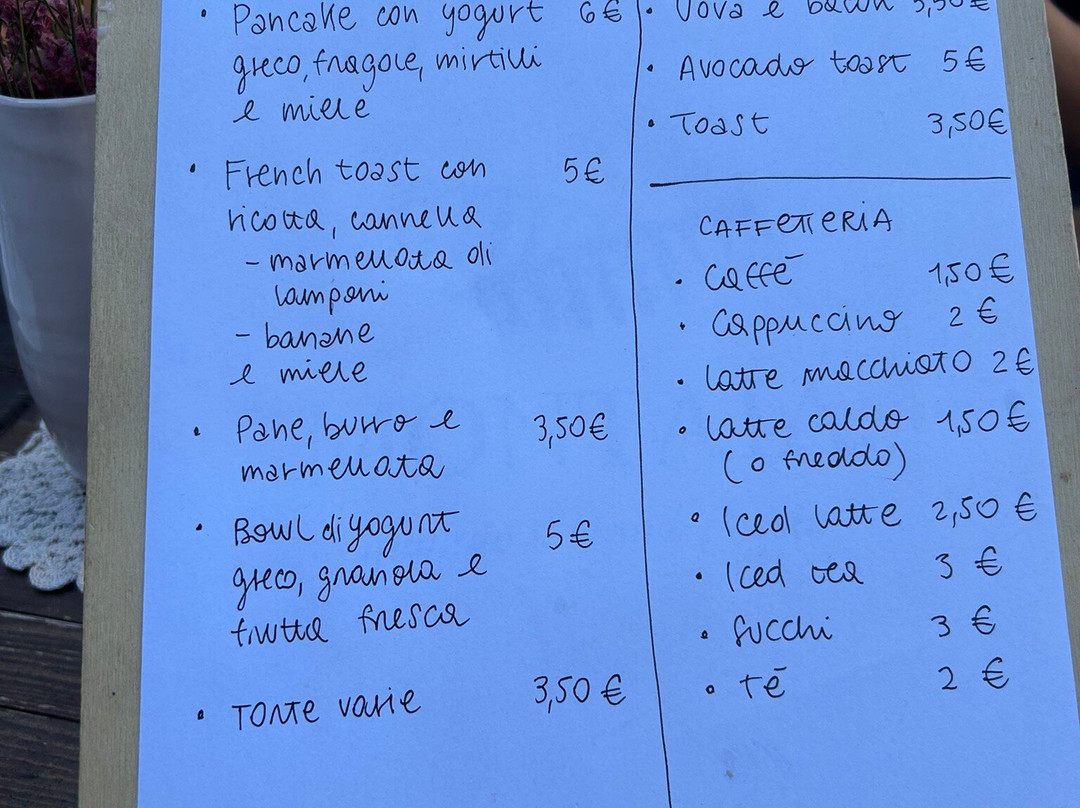 • Pancake con yogurt 6€
greco, fragole, mirtilli
e miele
• French toast con 5€
ricotta, cannella
- marmellata di
lamponi
- banane
e miele
• Pane, burro e 3,50€
marmellata
• Bowl di yogurt 5€
greco, granola e
frutta fresca
• Torte varie 3,50€
• Uova e bacon 5,50€
• Avocado toast 5€
• Toast 3,50€
CAFFETTERIA
• Caffè 1,50€
• Cappuccino 2€
• Latte macchiato 2€
• Latte caldo 1,50€
(o freddo)
• Iced latte 2,50€
• Iced tea 3€
• Succhi 3€
• Tè 2€